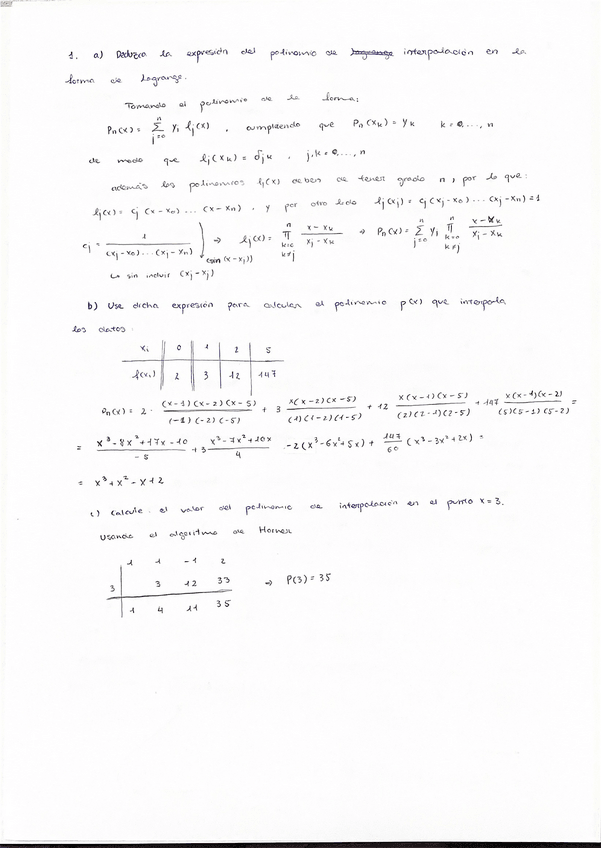 1. a) Deduzca la expresión del polinomio de interpolación en la
forma de Lagrange.
Tomando el polinomio de la forma:
Pn(x) = Σ_{j=0}^{n} yj lj(x) , cumpliendo que Pn(xk) = yk k = 0, ..., n
de modo que lj(xk) = δjk , j,k = 0, ..., n
además los polinomios lj(x) deben de tener grado n, por lo que:
lj(x) = cj (x-x0) ... (x-xn) , y por otro lado lj(xj) = cj(xj-x0) ... (xj-xn) = 1
cj = 1/((xj-x0) ... (xj-xn)) (sin (x-xj)) ⇒ lj(x) = Π_{k=0, k≠j}^{n} (x-xk)/(xj-xk) ⇒ Pn(x) = Σ_{j=0}^{n} yj Π_{k=0, k≠j}^{n} (x-xk)/(xj-xk)
↳ sin incluir (xj-xj)
b) Use dicha expresión para calcular el polinomio p(x) que interpola
los datos:
xi 0 1 2 5
f(xi) 2 3 12 147
Pn(x) = 2 · (x-1)(x-2)(x-5)/((-1)(-2)(-5)) + 3 x(x-2)(x-5)/((1)(1-2)(1-5)) + 12 x(x-1)(x-5)/((2)(2-1)(2-5)) + 147 x(x-1)(x-2)/((5)(5-1)(5-2)) =
= (x³-8x²+17x-10)/-5 + 3 (x³-7x²+10x)/4 -2(x³-6x²+5x) + 147/60 (x³-3x²+2x) =
= x³+x²-x+2
c) Calcule el valor del polinomio de interpolación en el punto x=3.
Usando el algoritmo de Horner
1 1 -1 2
3 3 12 33 ⇒ P(3) = 35
1 4 11 35